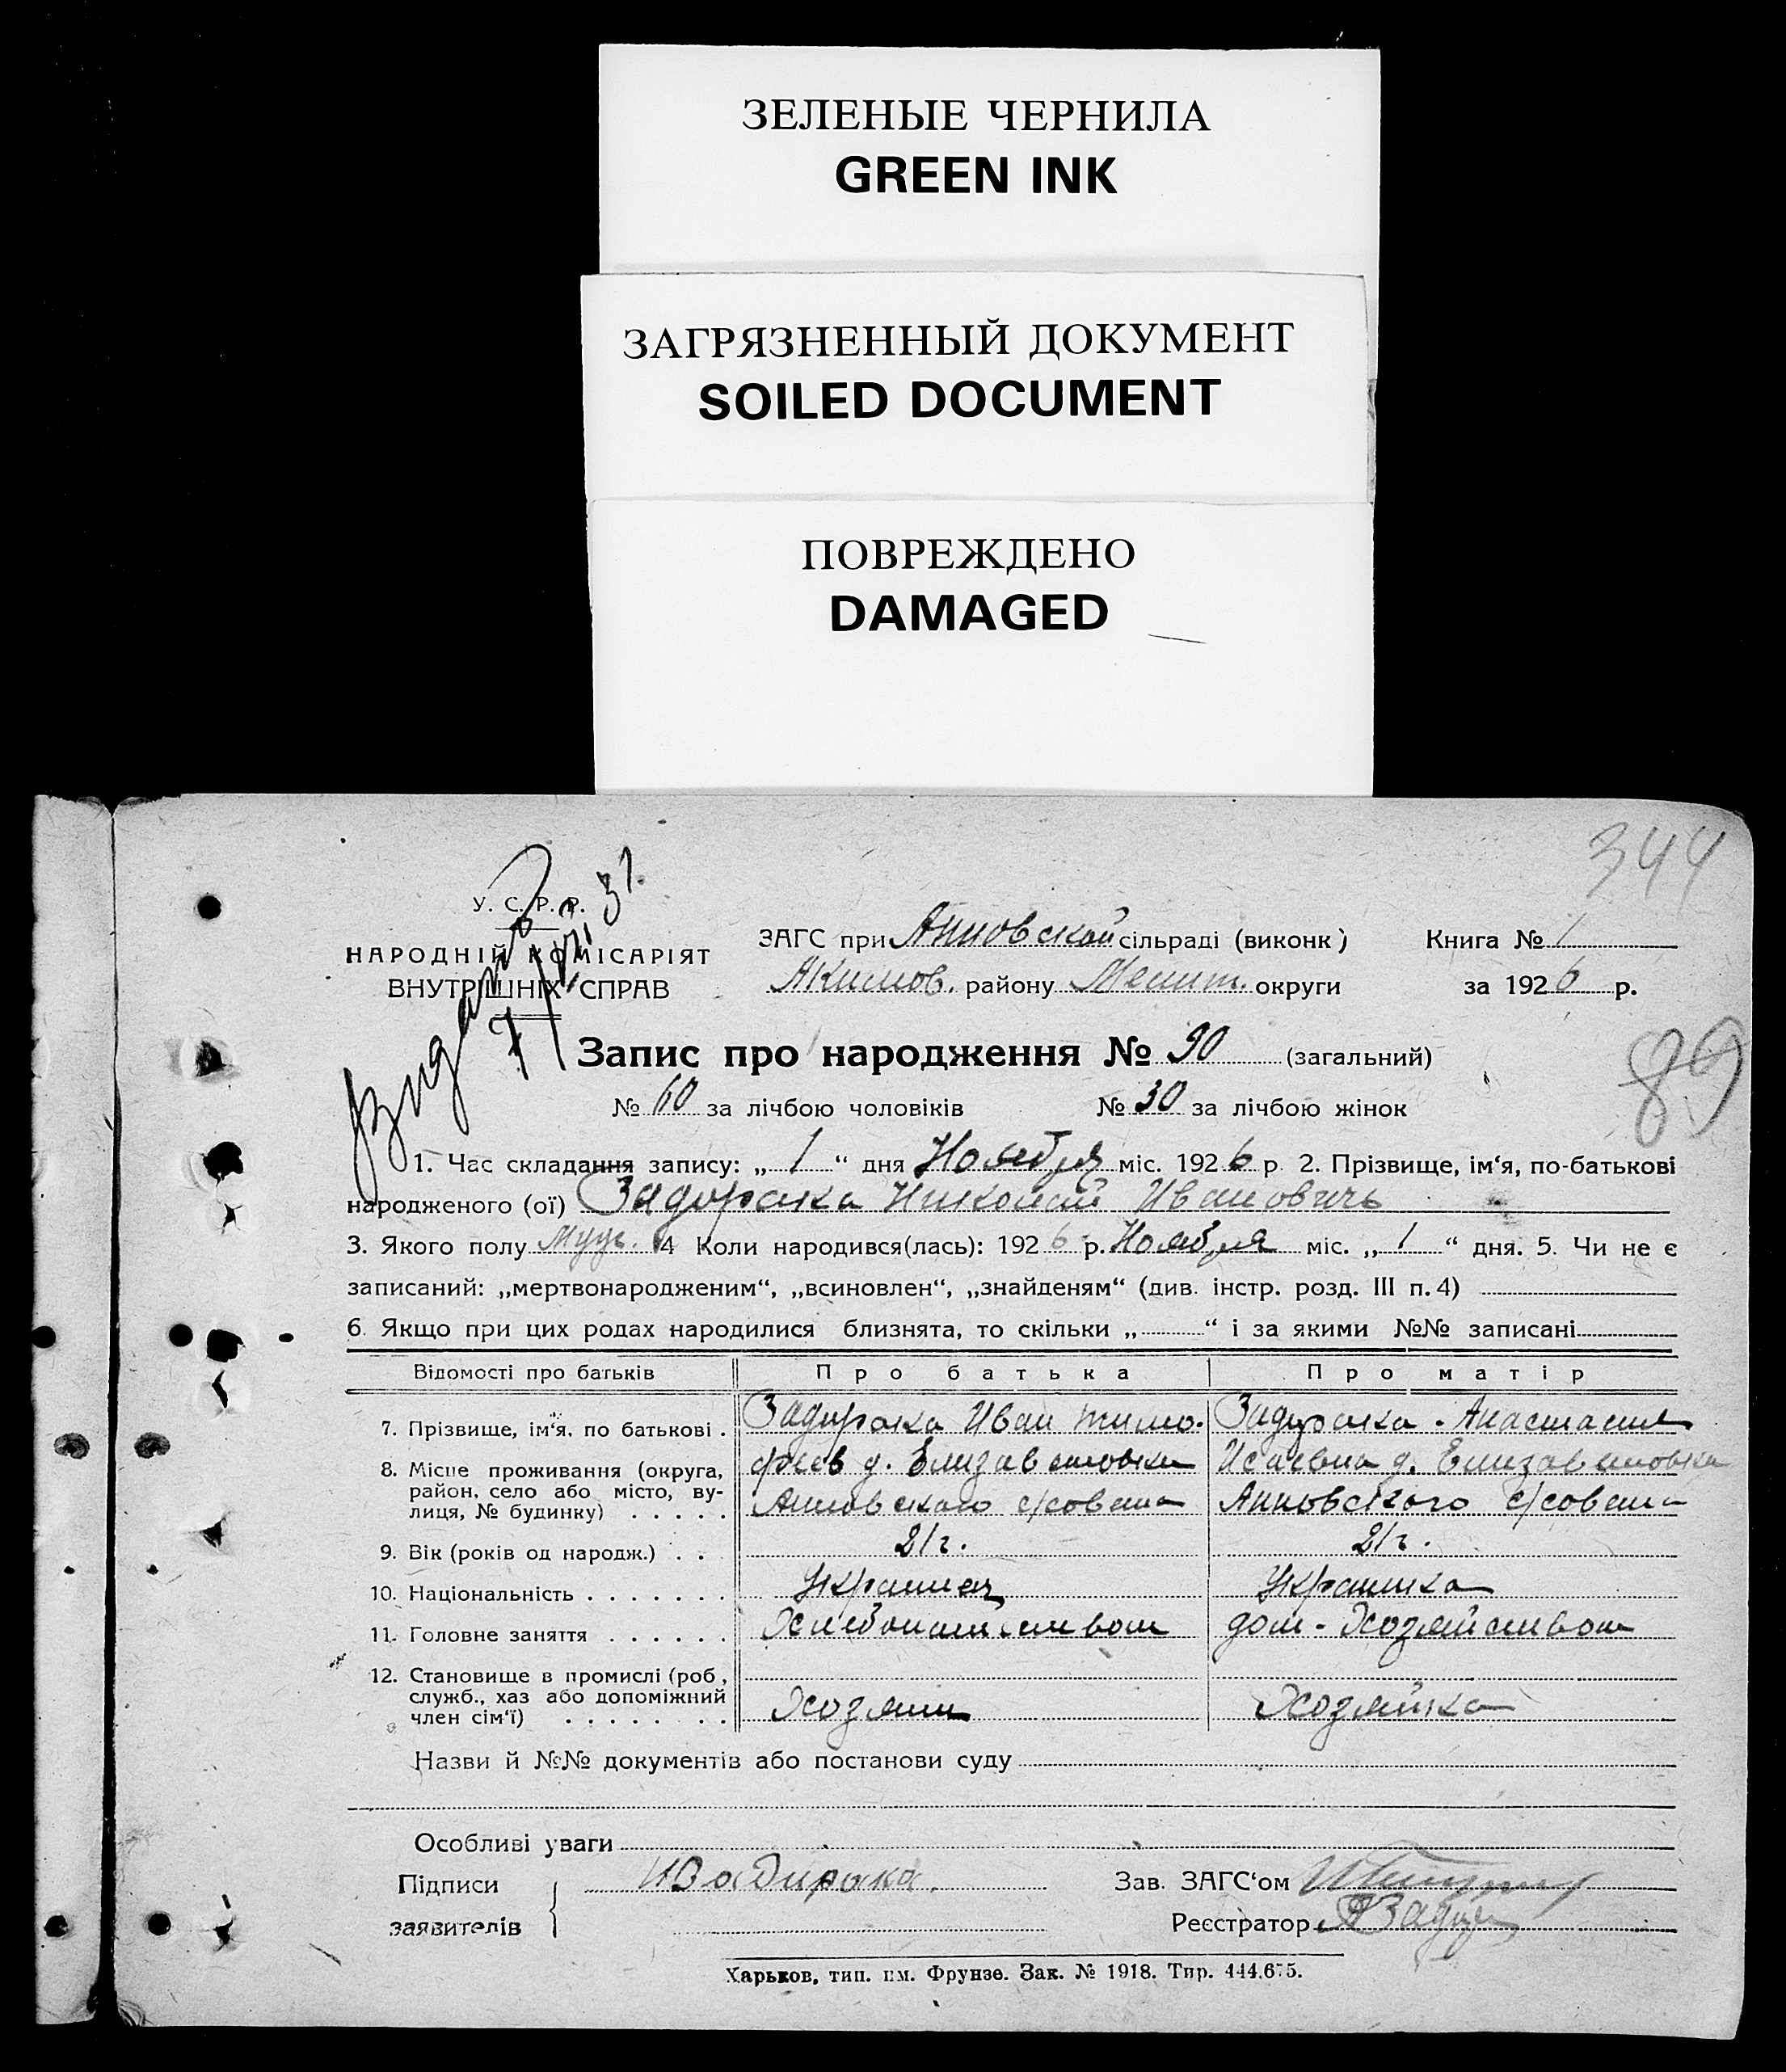 ЗЕЛЕНЫЕ ЧЕРНИЛА
GREEN INK
ЗАГРЯЗНЕННЫЙ ДОКУМЕНТ
SOILED DOCUMENT
ПОВРЕЖДЕНО
DAMAGED
344
У. С. Р. Р.
НАРОДНІЙ КОМІСАРІЯТ
ВНУТРІШНІХ СПРАВ
Видано
ЗАГС при Анновской сільраді (виконк) Книга № 1
Акимов. району Мелит. округи за 1926 р.
Запис про народження № 90 (загальний)
89
№ 60 за лічбою чоловіків № 30 за лічбою жінок
1. Час складання запису: „ 1 “ дня Ноября міс. 1926 р 2. Прізвище, ім‘я, по-батькові
народженого (ої) Задирака Николай Ивановичь
3. Якого полу Муж. 4 Коли народився(лась): 1926 р. Ноября міс. „ 1 “ дня. 5. Чи не є
записаний: „мертвонародженим“, „всиновлен“, „знайденям“ (див. інстр. розд. III п. 4)
6. Якщо при цих родах народилися близнята, то скільки „ “ і за якими №№ записані
Відомості про батьків Про батька Про матір
7. Прізвище, ім‘я, по батькові . Задирака Иван Тимо- Задирака . Анастасия
8. Місце проживання (округа, феев д. Елизаветовка Исаевна д. Елизаветовка
район, село або місто, ву-
лиця, № будинку) . . . . . Анновского с/совета Анновского с/совета
9. Вік (років од народж.) . . 21г. 21г.
10. Національність . . . . . . . Украинец Украинка
11. Головне заняття . . . . . . Хлебопашеством дом-Хозяйством
12. Становище в промислі (роб,
служб., хаз або допоміжний
член сім‘ї) . . . . . . . Хозяин Хозяйка
Назви й №№ документів або постанови суду
Особливі уваги
Підписи И Задирака. Зав. ЗАГС‘ом
заявителів Реєстратор
Харьков, тип. им. Фрунзе. Зак. № 1918. Тир. 444.675.